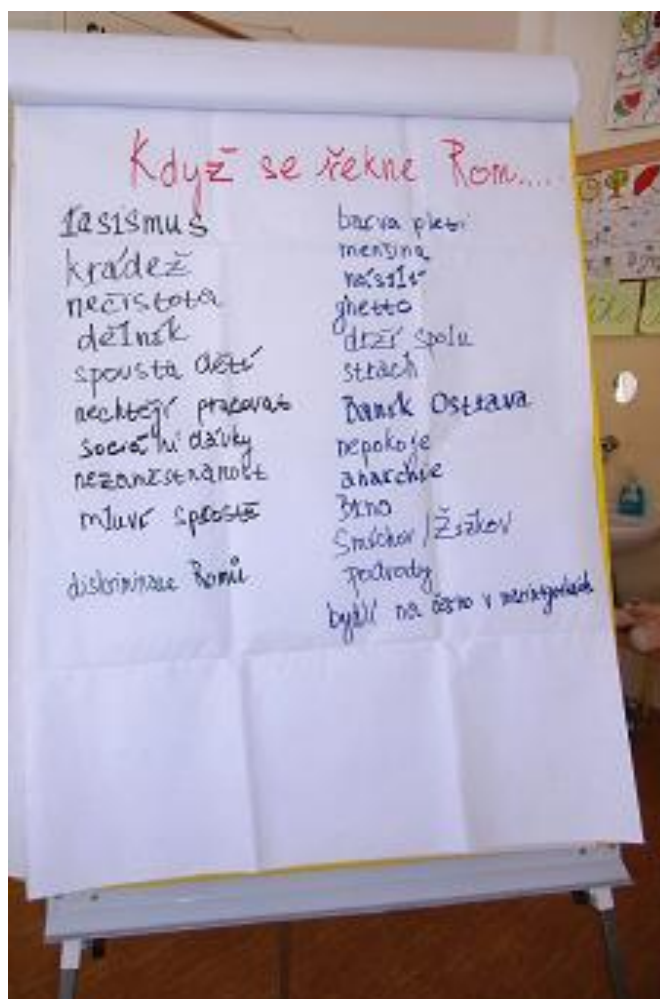 Když se řekne Rom....
rasismus
krádež
nečistota
dělník
spousta dětí
nechtějí pracovat
sociální dávky
nezaměstnanost
mluví sprostě
diskriminace Romů
barva pleti
menšina
násilí
ghetto
drží spolu
strach
Baník Ostrava
nepokoje
anarchie
Brno
Smíchov / Žižkov
podvody
bydlí na černo v maringotkách